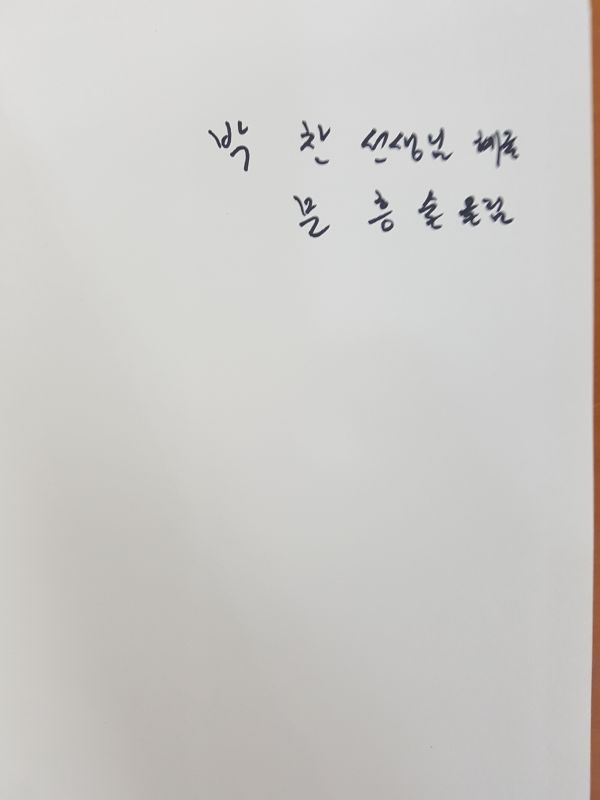 박 찬 선생님 혜존
문 흥 술 올림